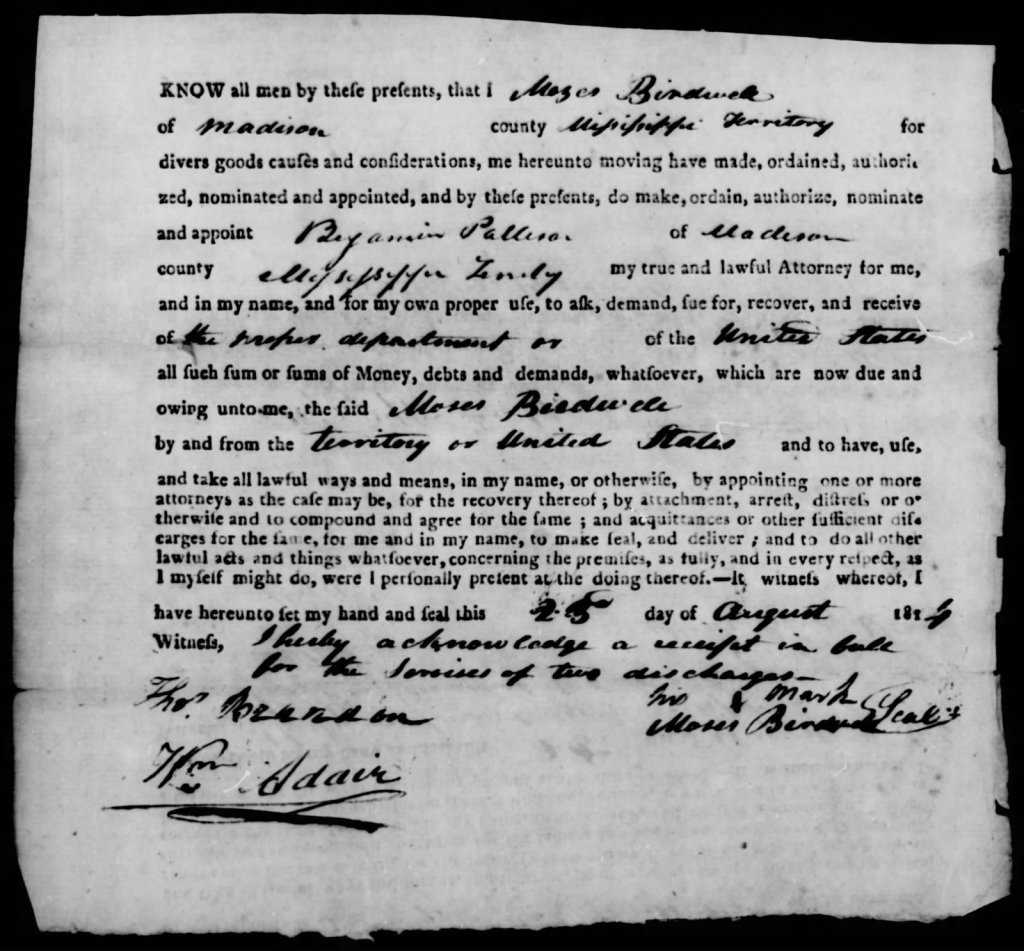 KNOW all men by theſe preſents, that I Moses Birdwell
of Madison county Mississippi Territory for
divers goods cauſes and conſiderations, me hereunto moving have made, ordained, authori-
zed, nominated and appointed, and by theſe preſents, do make, ordain, authorize, nominate
and appoint Benjamin Patteson of Madison
county my true and lawful Attorney for me,
and in my name, and for my own proper uſe, to aſk, demand, ſue for, recover, and receive
of the proper department or of the United States
all ſuch ſum or ſums of Money, debts and demands, whatſoever, which are now due and
owing unto me, the ſaid Moses Birdwell
by and from the territory or United States and to have, uſe,
and take all lawful ways and means, in my name, or otherwiſe, by appointing one or more
attorneys as the caſe may be, for the recovery thereof; by attachment, arreſt, diſtreſs or o-
therwiſe and to compound and agree for the ſame; and acquittances or other ſufficient diſ-
carges for the ſame, for me and in my name, to make ſeal, and deliver; and to do all other
lawful acts and things whatſoever, concerning the premiſes, as fully, and in every reſpect, as
I myſelf might do, were I perſonally preſent at the doing thereof.—In witneſs whereof, I
have hereunto ſet my hand and ſeal this 25 day of August 1814
Witneſs, I herby acknowledge a receipt in full
for the Servises of two discharges—
Thos. Brandon his X mark
Moses Birdwell Seal
Wm Adair